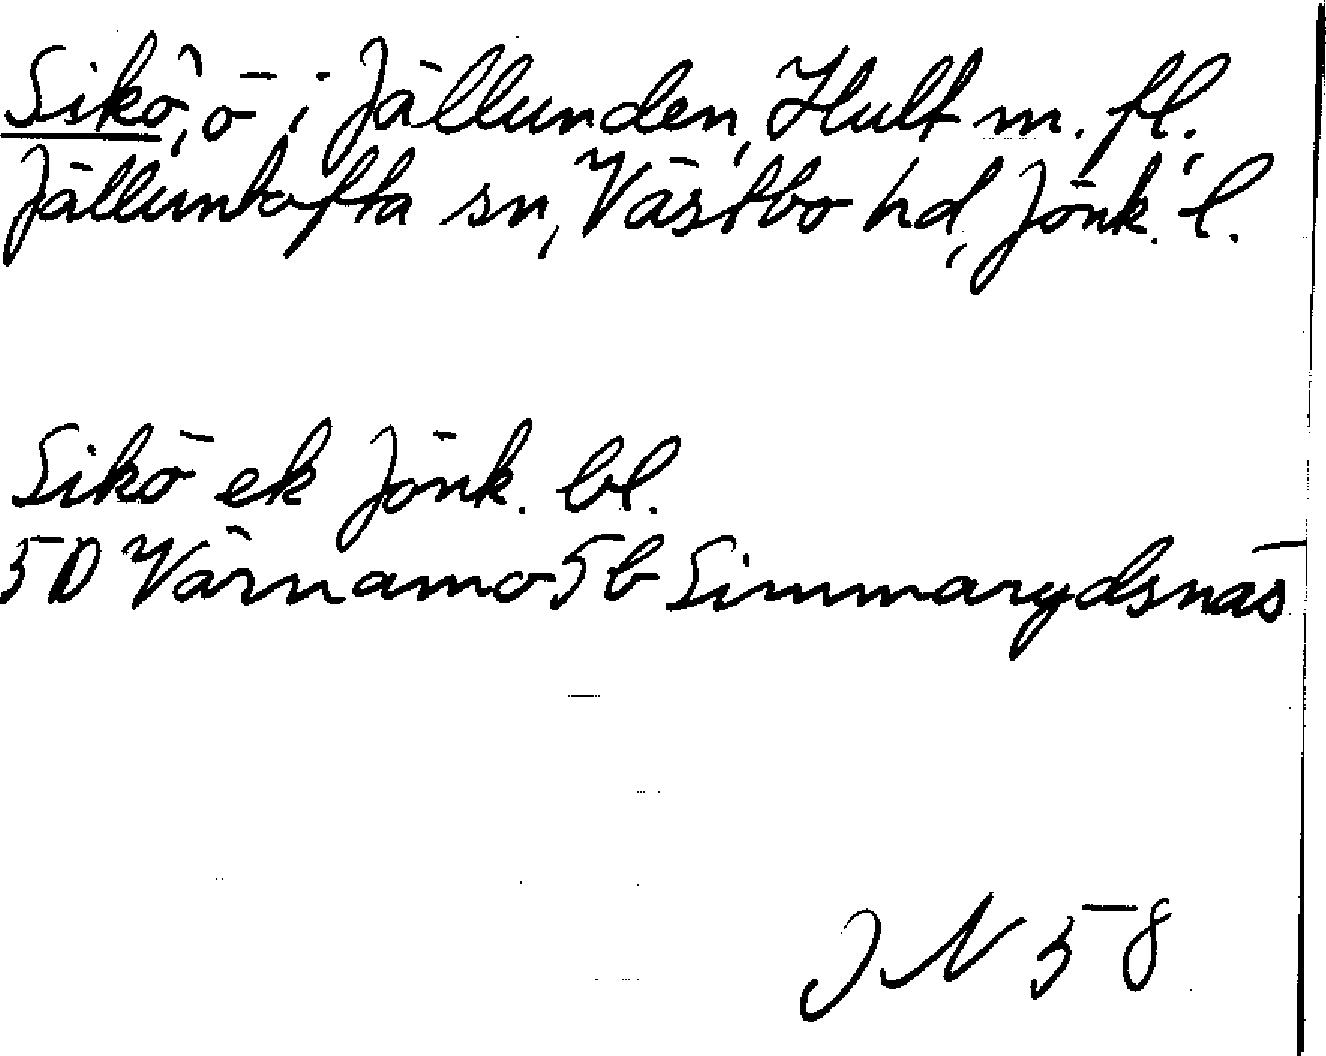 Sikö, ö i Jällunden, Hult m. fl.
Jälluntofta sn, Västbo hd, Jönk. l.
Sikö ek Jönk. bl.
5D Värnamo 5b Simmarydsnäs
JN 58